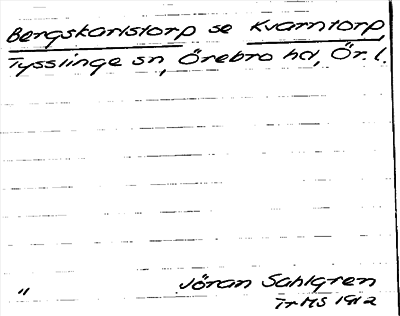 Bergskarlstorp se Kvarntorp,
Tysslinge sn, Örebro hd, Ör. l.
" Jöran Sahlgren
TrMS 1912